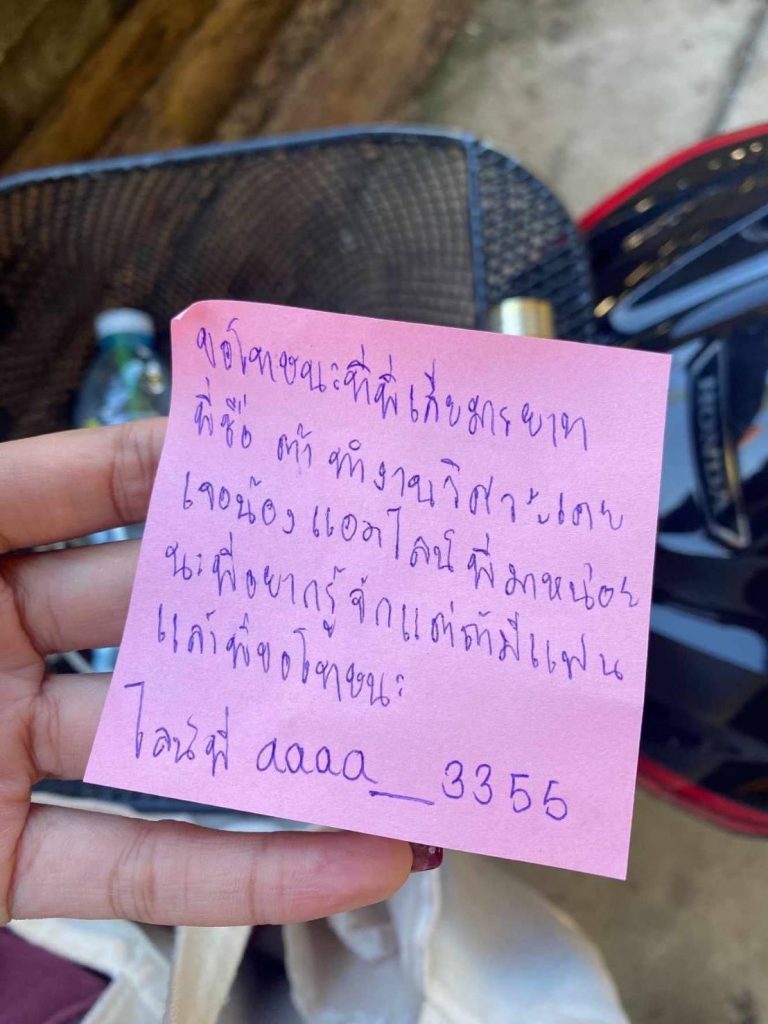 ขอโทษนะที่พี่เสียมารยาท
พี่ชื่อ ต้า ทำงานวิศวะเคย
เจอน้อง แอดไลน์ พี่มาหน่อย
นะพี่อยากรู้จักแต่ถ้ามีแฟน
แล้วพี่ขอโทษนะ
ไลน์พี่ aaaa__3355
HONDA